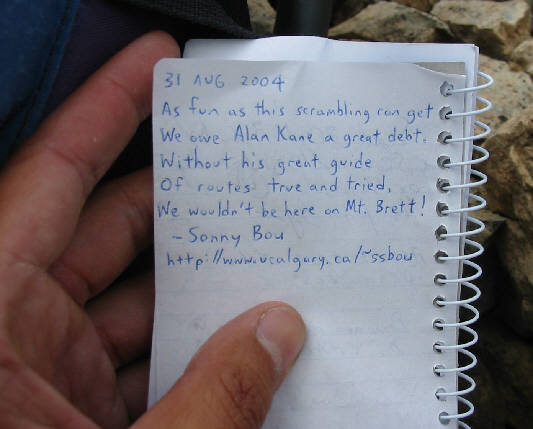 31 AUG 2004
As fun as this scrambling can get
We owe Alan Kane a great debt.
Without his great guide
Of routes true and tried,
We wouldn't be here on Mt. Brett!
- Sonny Bou
http://www.ucalgary.ca/~ssbou